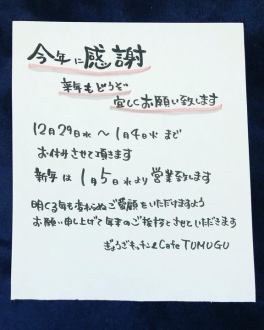 今年に感謝
新年もどうぞ
宜しくお願い致します
12月29日水 〜 1月4日火 まで
お休みさせて頂きます
新年は 1月5日水より営業致します
明くる年も変わらぬご愛顧をいただけますよう
お願い申し上げて年末のご挨拶とさせていただきます
ぎょうざキッチン&Cafe TUMUGU